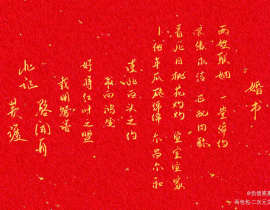 婚书
两姓联姻 一堂缔约
良缘永结 匹配同称
看此日桃花灼灼 宜室宜家
卜他年瓜瓞绵绵 尔昌尔炽
谨以白头之约
书向鸿笺
好将红叶之盟
载明鸳谱
此证